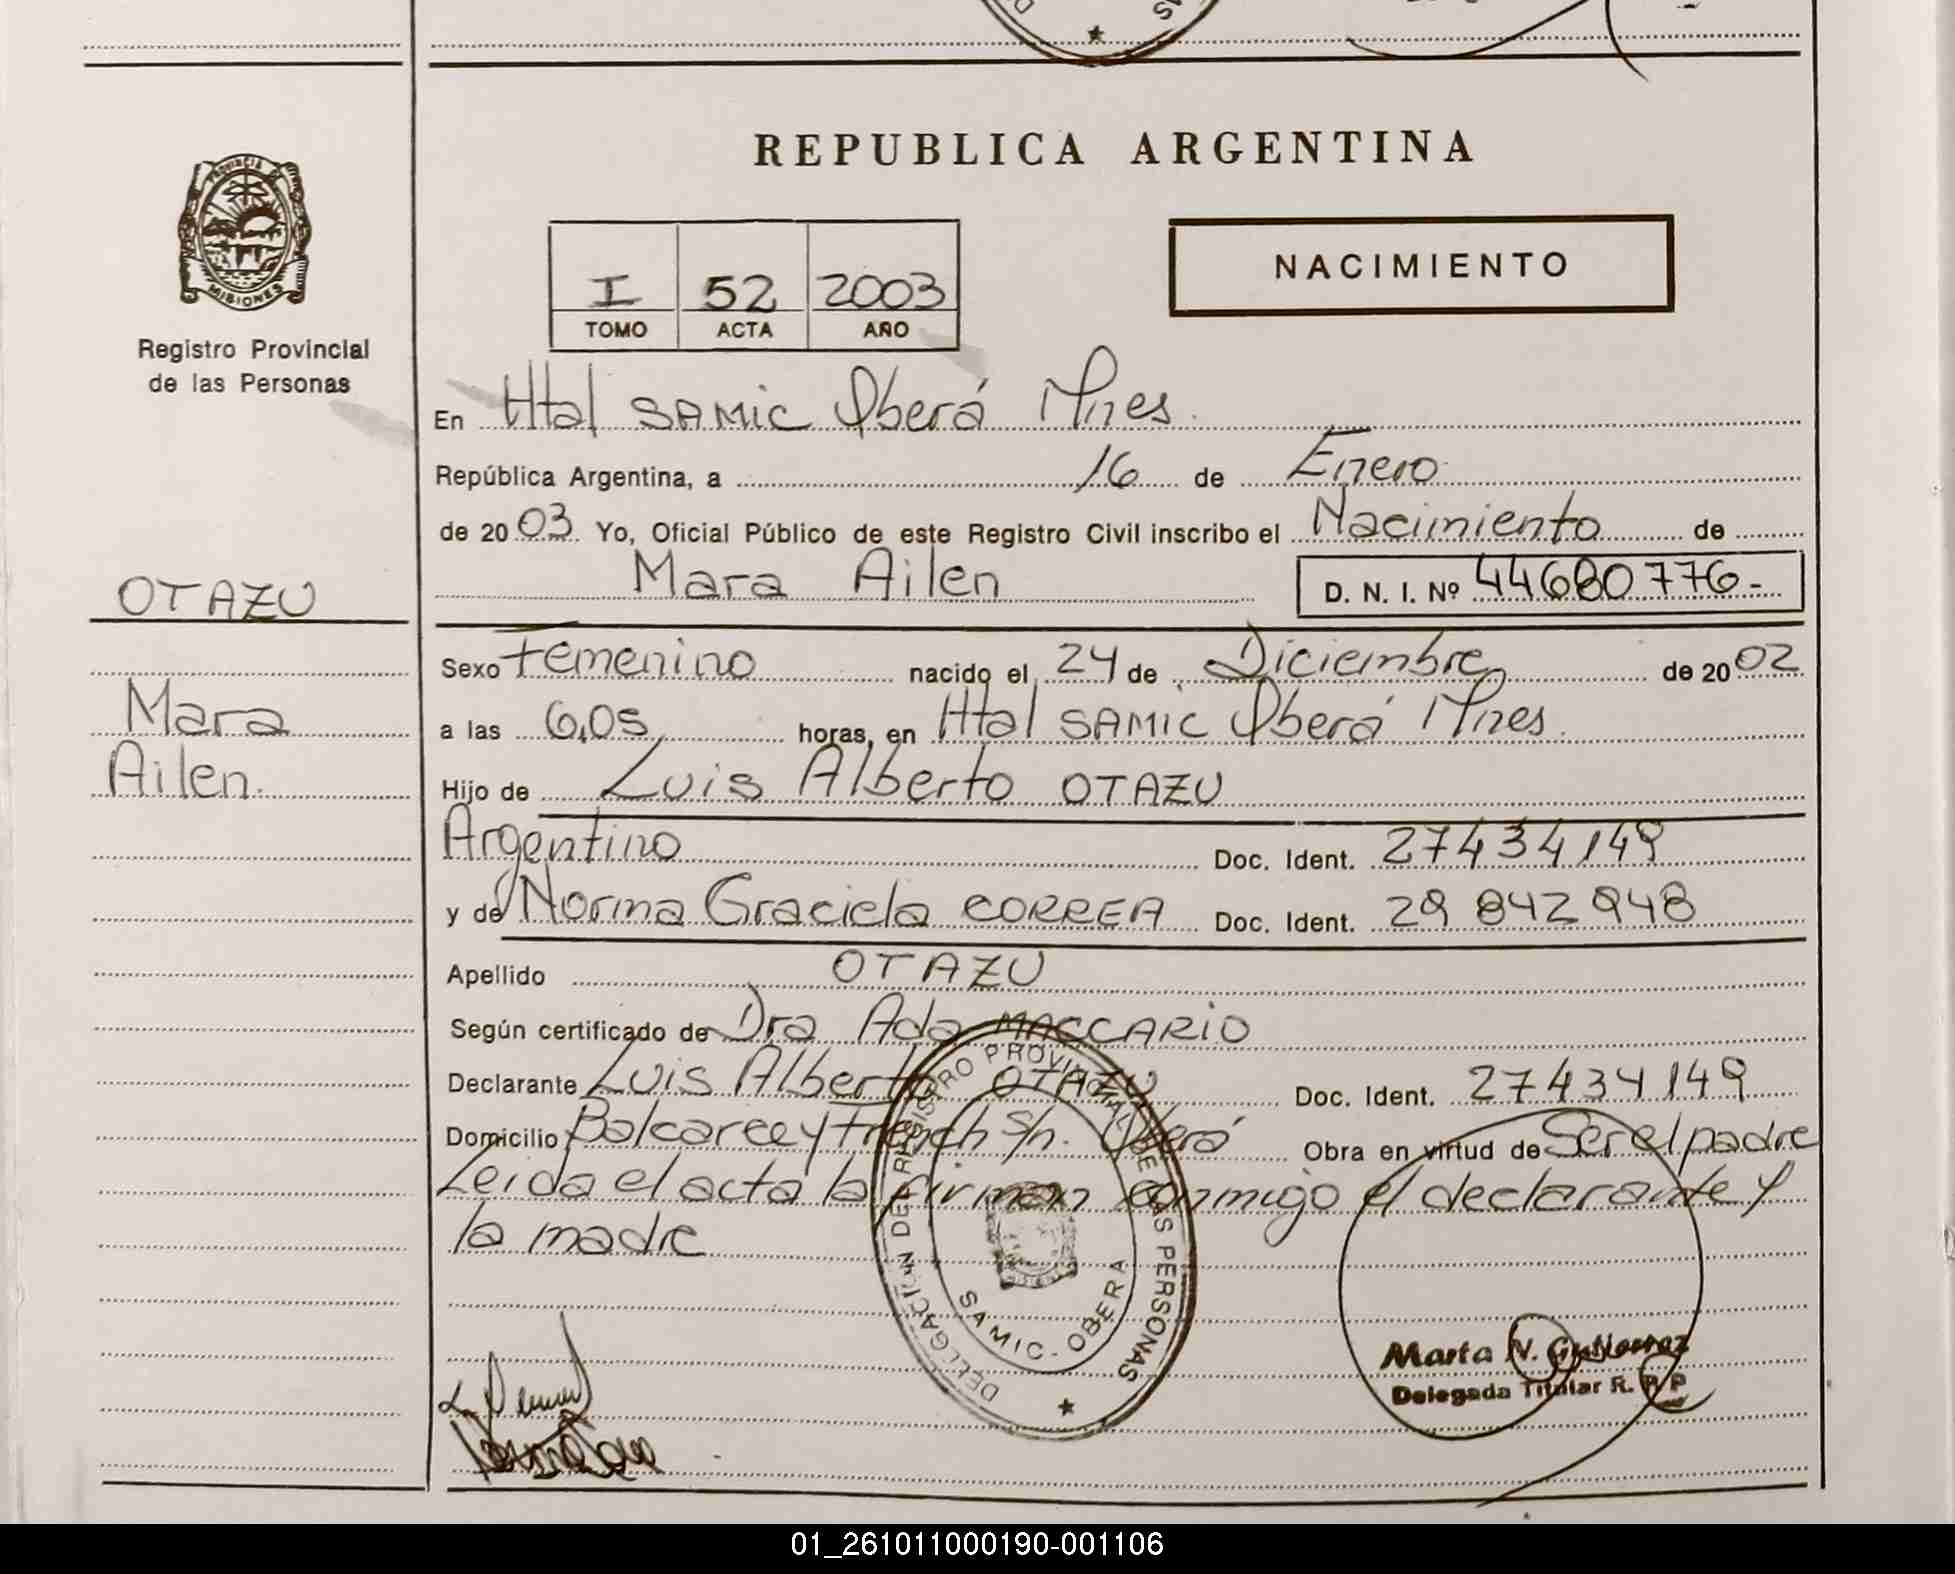 REPUBLICA ARGENTINA
PROVINCIA DE
MISIONES
Registro Provincial
de las Personas
I 52 2003
TOMO ACTA AÑO
NACIMIENTO
En Htal SAMIC Oberá Mnes.
República Argentina, a 16 de Enero
de 20 03. Yo, Oficial Público de este Registro Civil inscribo el Nacimiento de
Mara Ailen D. N. I. Nº 44680776-
OTAZU
Mara
Ailen.
Sexo Femenino nacido el 24 de Diciembre de 20 02
a las 6,05 horas, en Htal SAMIC Oberá Mnes.
Hijo de Luis Alberto OTAZU
Argentino Doc. Ident. 27434149
y de Norma Graciela CORREA Doc. Ident. 29 842 948
Apellido OTAZU
Según certificado de Dra Ada MACCARIO
Declarante Luis Alberto OTAZU Doc. Ident. 27434149
Domicilio Balcarce y French S/n. Oberá Obra en virtud de Ser el padre
Leida el acta la firman conmigo el declarante y
la madre
DELEGACION DEL REGISTRO PROVINCIAL DE LAS PERSONAS
SAMIC - OBERA
Marta N. Gutierrez
Delegada Titular R. P. P.
01_261011000190-001106